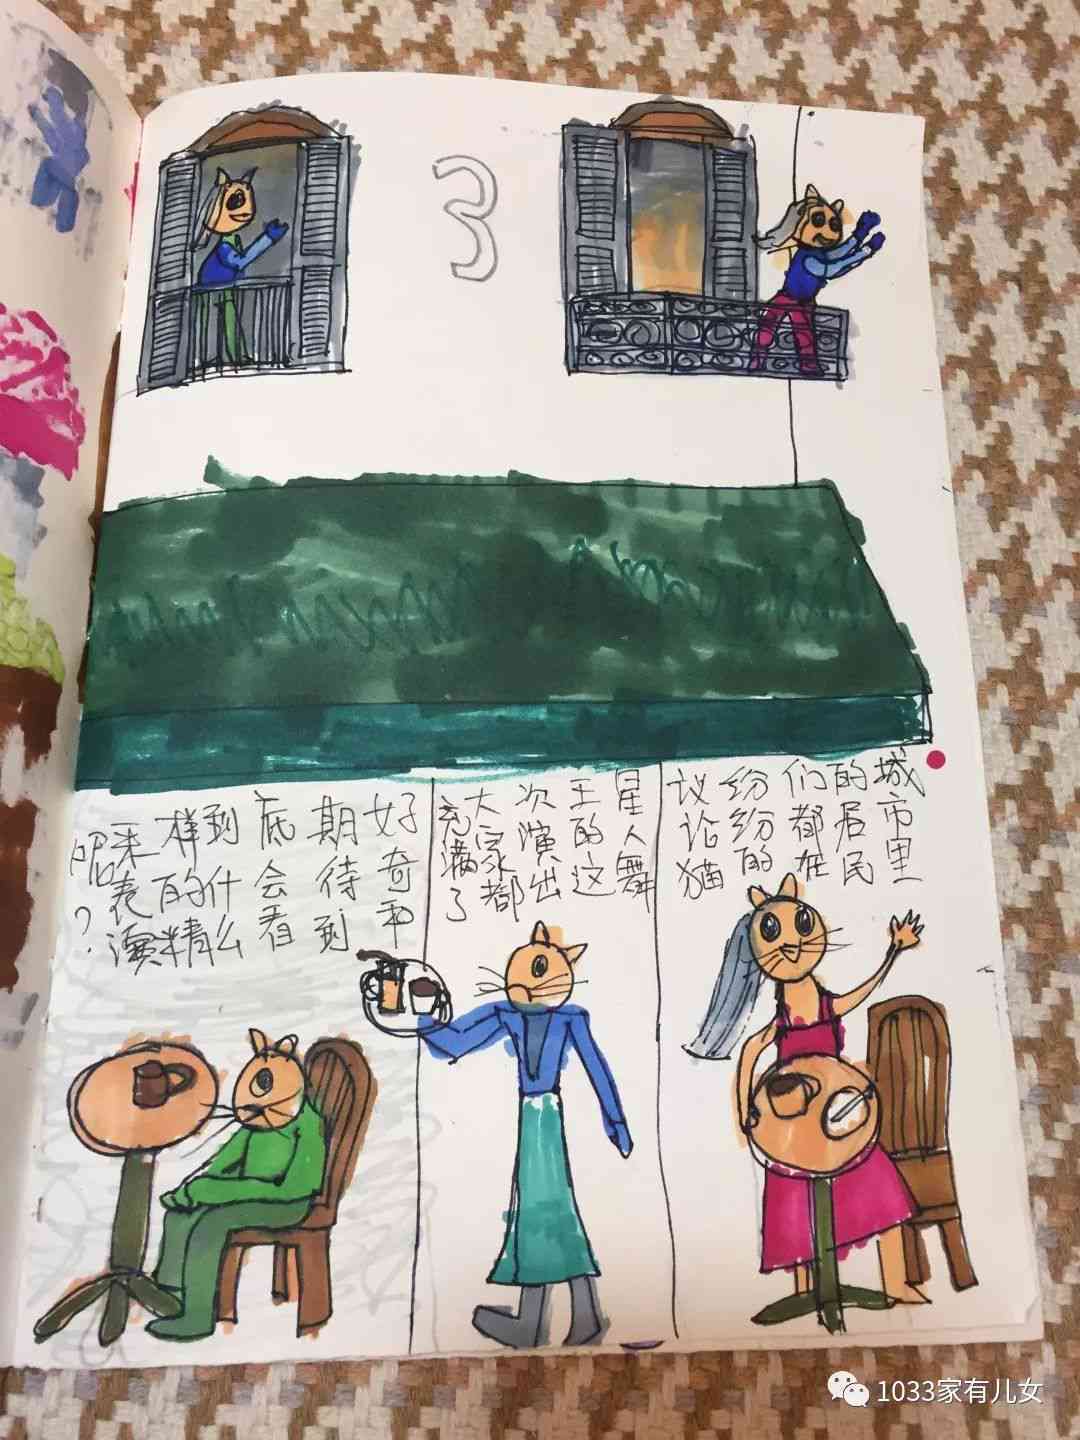 3
城市里
的居民
们都在
纷纷的
议论猫
星人舞
王的这
次演出
大家都
充满了
好奇和
期待到
底会看
到什么
样的精
采表演
呢？
1033家有儿女